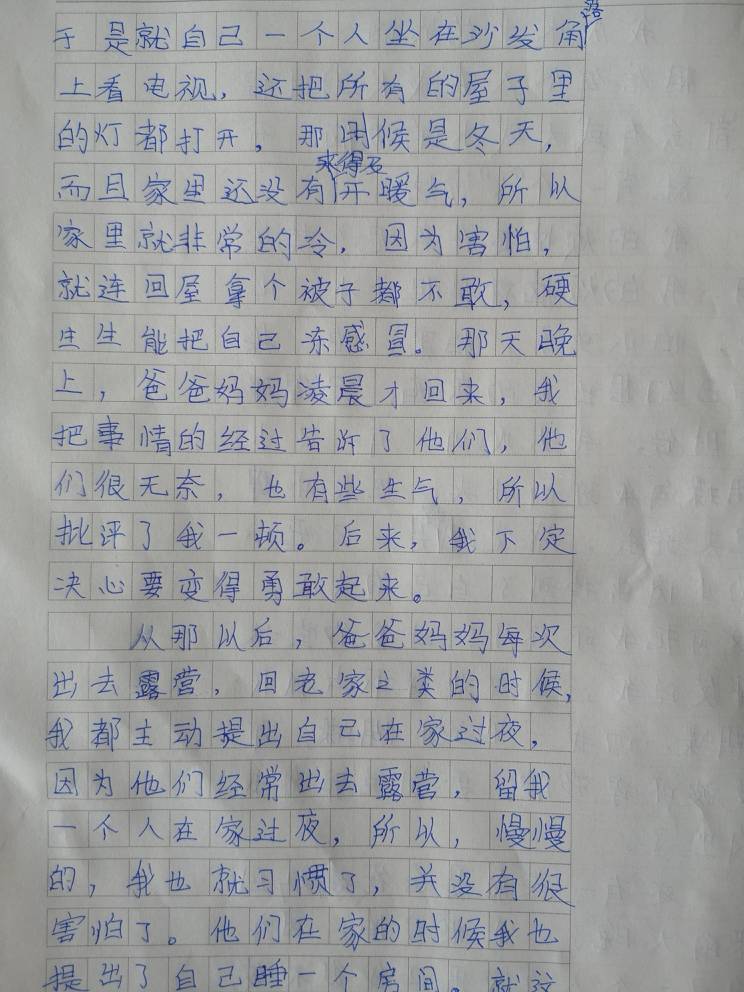 于是就自己一个人坐在沙发角落
上看电视，还把所有的屋子里
的灯都打开，那时候是冬天，
而且家里还没有来得及开暖气，所以
家里就非常的冷，因为害怕，
就连回屋拿个被子都不敢，硬
生生能把自己冻感冒。那天晚
上，爸爸妈妈凌晨才回来，我
把事情的经过告诉了他们，他
们很无奈，也有些生气，所以
批评了我一顿。后来，我下定
决心要变得勇敢起来。
从那以后，爸爸妈妈每次
出去露营，回老家之类的时候，
我都主动提出自己在家过夜，
因为他们经常出去露营，留我
一个人在家过夜，所以，慢慢
的，我也就习惯了，并没有很
害怕了。他们在家的时候我也
提出了自己睡一个房间。就这